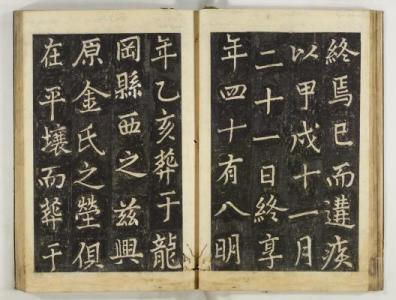 終焉已而遘疾
以甲戌十一月
二十一日終享
年四十有八明
年乙亥葬于龍
岡縣西之茲興
原金氏之塋俱
在平壤而葬于